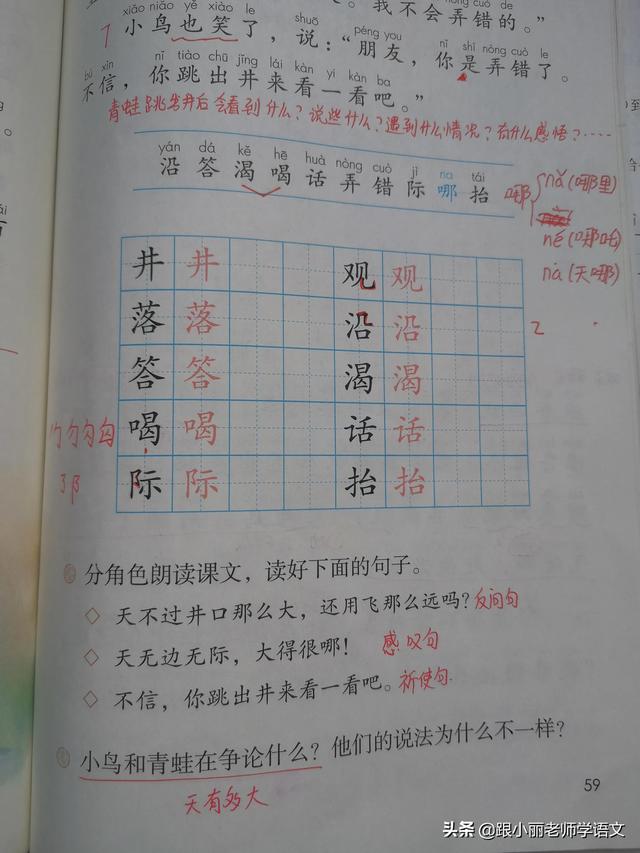 cuò de
我不会弄错的。”
xiǎo niǎo yě xiào le shuō péng you nǐ shì nòng cuò le
7 小鸟也笑了，说：“朋友，你是弄错了。
bú xìn nǐ tiào chū jǐng lái kàn yi kàn ba
不信，你跳出井来看一看吧。”
青蛙跳出井后会看到什么？说些什么？遇到什么情况？有什么感悟？……
yán dá kě hē huà nòng cuò jì na tái
沿 答 渴 喝 话 弄 错 际 哪 抬
哪
nǎ（哪里）
né（哪吒）
na（天哪）
井 井 观 观
落 落 沿 沿
2
答 答 渴 渴
喝 喝 话 话
际 际 抬 抬
分角色朗读课文，读好下面的句子。
◇ 天不过井口那么大，还用飞那么远吗？反问句
◇ 天无边无际，大得很哪！ 感叹句
◇ 不信，你跳出井来看一看吧。祈使句
小鸟和青蛙在争论什么？他们的说法为什么不一样？
天有多大
59
头条 @跟小丽老师学语文